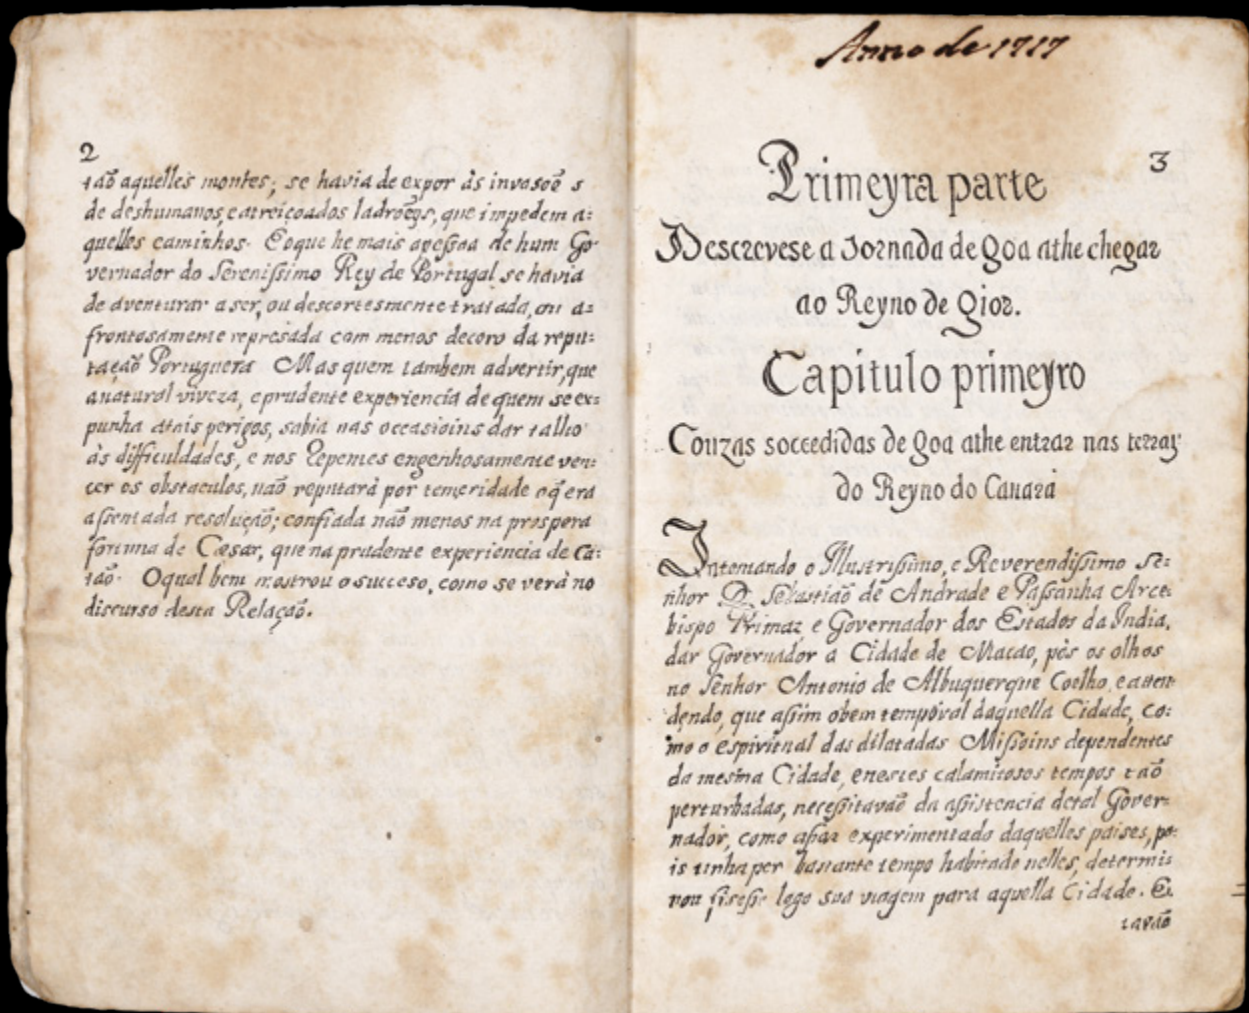 2
taõ aquelles montes; se havia de expor às invasoẽ s
de deshumanos, e atreiçoados ladroẽs, que impedem a=
quelles caminhos. E o que he mais apessoa de hum Go-
vernador do Serenissimo Rey de Portugal se havia
de aventurar a ser, ou descortesmente tratada, ou a=
frontosamente represada com menos decoro da repu=
taçaõ Portugueza Mas quem tambem advertir, que
a natural viveza, e prudente experiencia de quem se ex=
punha atais perigos, sabia nas occasioins dar talho
às difficuldades, e nos repentes engenhosamente ven=
cer os obstaculos, naõ reputarà por temeridade o q̃ era
assentada resoluçaõ; confiada naõ menos na prospera
fortuna de Cæsar, que na prudente experiencia de Ca=
taõ. Oqual bem mostrou o succeso, como se verà no
discurso desta Relaçaõ.
Anno de 1717
3
Primeyra parte
Descrevese a Jornada de Goa athe chegar
ao Reyno de Gior.
Capitulo primeyro
Couzas soccedidas de Goa athe entrar nas terras
do Reyno do Canarà
Intentando o Illustrissimo, e Reverendissimo Se=
nhor D. Sebastiaõ de Andrade e Passanha Arce=
bispo Primaz e Governador dos Estados da India,
dar Governador a Cidade de Macao, pòs os olhos
no Senhor Antonio de Albuquerque Coelho, e atten
dendo, que assim obem temporal daquella Cidade, co=
mo o espiritual das dilatadas Missoins dependentes
da mesma Cidade, enestes calamitosos tempos taõ
perturbadas, necessitavaõ da assistencia detal Gover=
nador, como assaz experimentado daquelles paises, po=
is tinha per bastante tempo habitado nelles, determi=
nou fisesse logo sua viagem para aquella Cidade. E
tavaõ